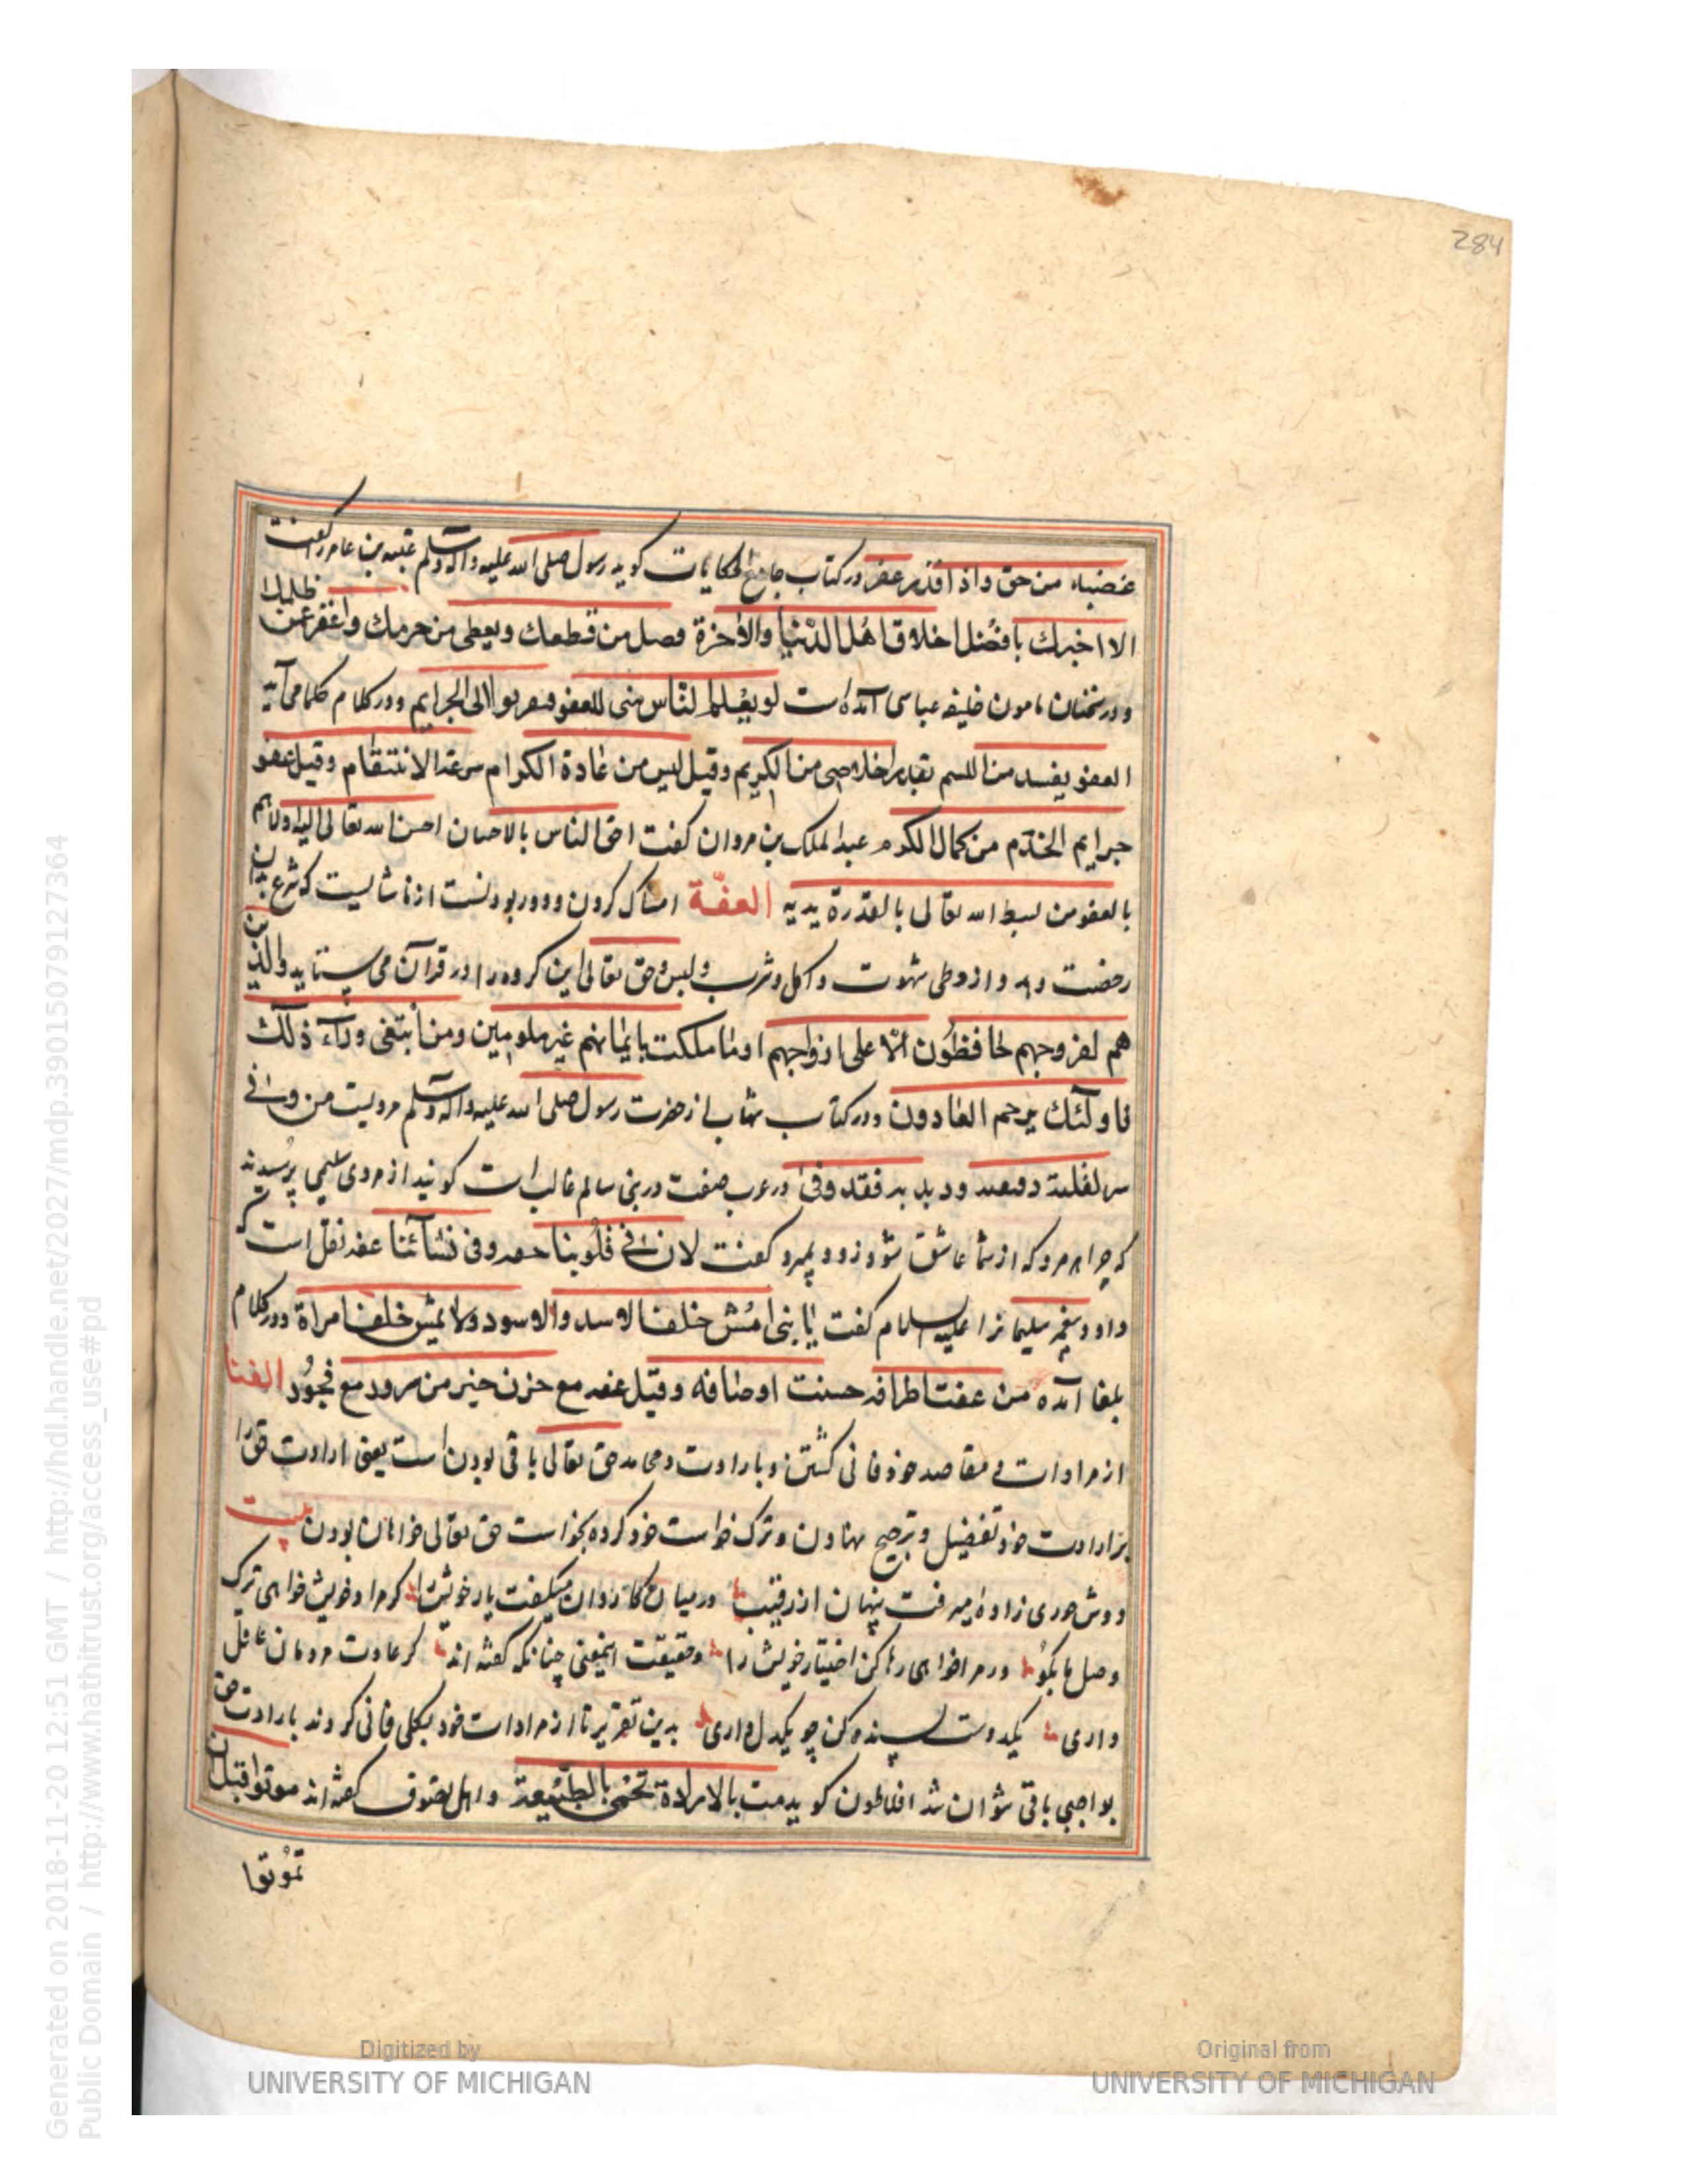 284
غضبه من حق واذا اقدر عفر در کتاب جامع الحکایات کوید رسول صلی الله علیه واله وسلم عقبه بن عامر را کفت
الا اخبرك بافضل اخلاق اهل الدنیا والاخرة فصل من قطعك ویعطی من حرمك واغفر عن ظلمك
ودر سخنان مامون خلیفه عباسی آمده است لو یعلم الناس منی للعفو الی الجرایم ودر کلام حکما می آید
العفو یفسد من اللسم بقدر اخلاصی من الکریم وقیل لیس من عادة الکرام سرعة الانتقام وقیل عفو
جرایم الخدم من کمال الکرم عبدالملک بن مروان کفت احق الناس بالاحسان احسن الله تعالی الیه واولاهم
بالعفو من بسط الله تعالی بالقدرة یدیه العفّة امساک کردن ودور بودنست از ناشایست که شرع بدان
رخصت دهد واز وطی شهوت واکل وشرب ولبس وحق تعالی این کروه را در قرآن می ستاید والذین
هم لفروجهم حافظون الّا علی ازواجهم اوما ملکت بایمانهم غیر ملومین ومن ابتغی ورآء ذلك
فاولئك هم العادون ودر کتاب شهاب از حضرت رسول صلی الله علیه واله وسلم مرویست من وقی
سر لقلقه وقبقبه وذبذبه فقد وقی در عرب صفت در بنی سالم غالب است کویند از مردی سلیمی پرسیدند
که چرا هر مرد که از شما عاشق شود زود بمیرد کفت لان فی قلوبنا وفی نشآئنا عفه نقل است که
داود پیغمبر سلیمانرا علیه السلام کفت یا بنی امش خلف الاسد والاسود ولا تمش خلف امراة ودر کلام
بلغا آمده من عفت اطرافه حسنت اوصافه وقیل عفه مع حزن خیر من سرور مع فجور الفنا
از مرادات ومقاصد خود فانی کشتن وبارادت ومحامد حق تعالی باقی بودن است یعنی ارادت حق را
بر ارادت خود تفضیل وترجیح نهادن وترک خواست خود کرده بخواست حق تعالی خواهان بودن بیت
دوش حوری زاده میرفت پنهان از رقیب درمیان کاروان میکفت یار خویش را کر مراد خویش خواهی ترک
وصل ما بکو ور مرا خواهی رها کن اختیار خویش را وحقیقت اینمعنی چنانکه کفته اند کر عادت مردمان عاقل
داری یکدوست پسنده کن چو یکدل داری بدین تقریر تا از مرادات خود بکلی فانی کردند بارادت حق
بواجبی باقی نتوان شد افلاطون کوید مت بالارادة تحی بالطبیعة واهل تصوف کفته اند موتوا قبل ان
تموتوا
Generated on 2018-11-20 12:51 GMT / http://hdl.handle.net/2027/mdp.39015079127364
Public Domain / http://www.hathitrust.org/access_use#pd
Digitized by
UNIVERSITY OF MICHIGAN
Original from
UNIVERSITY OF MICHIGAN